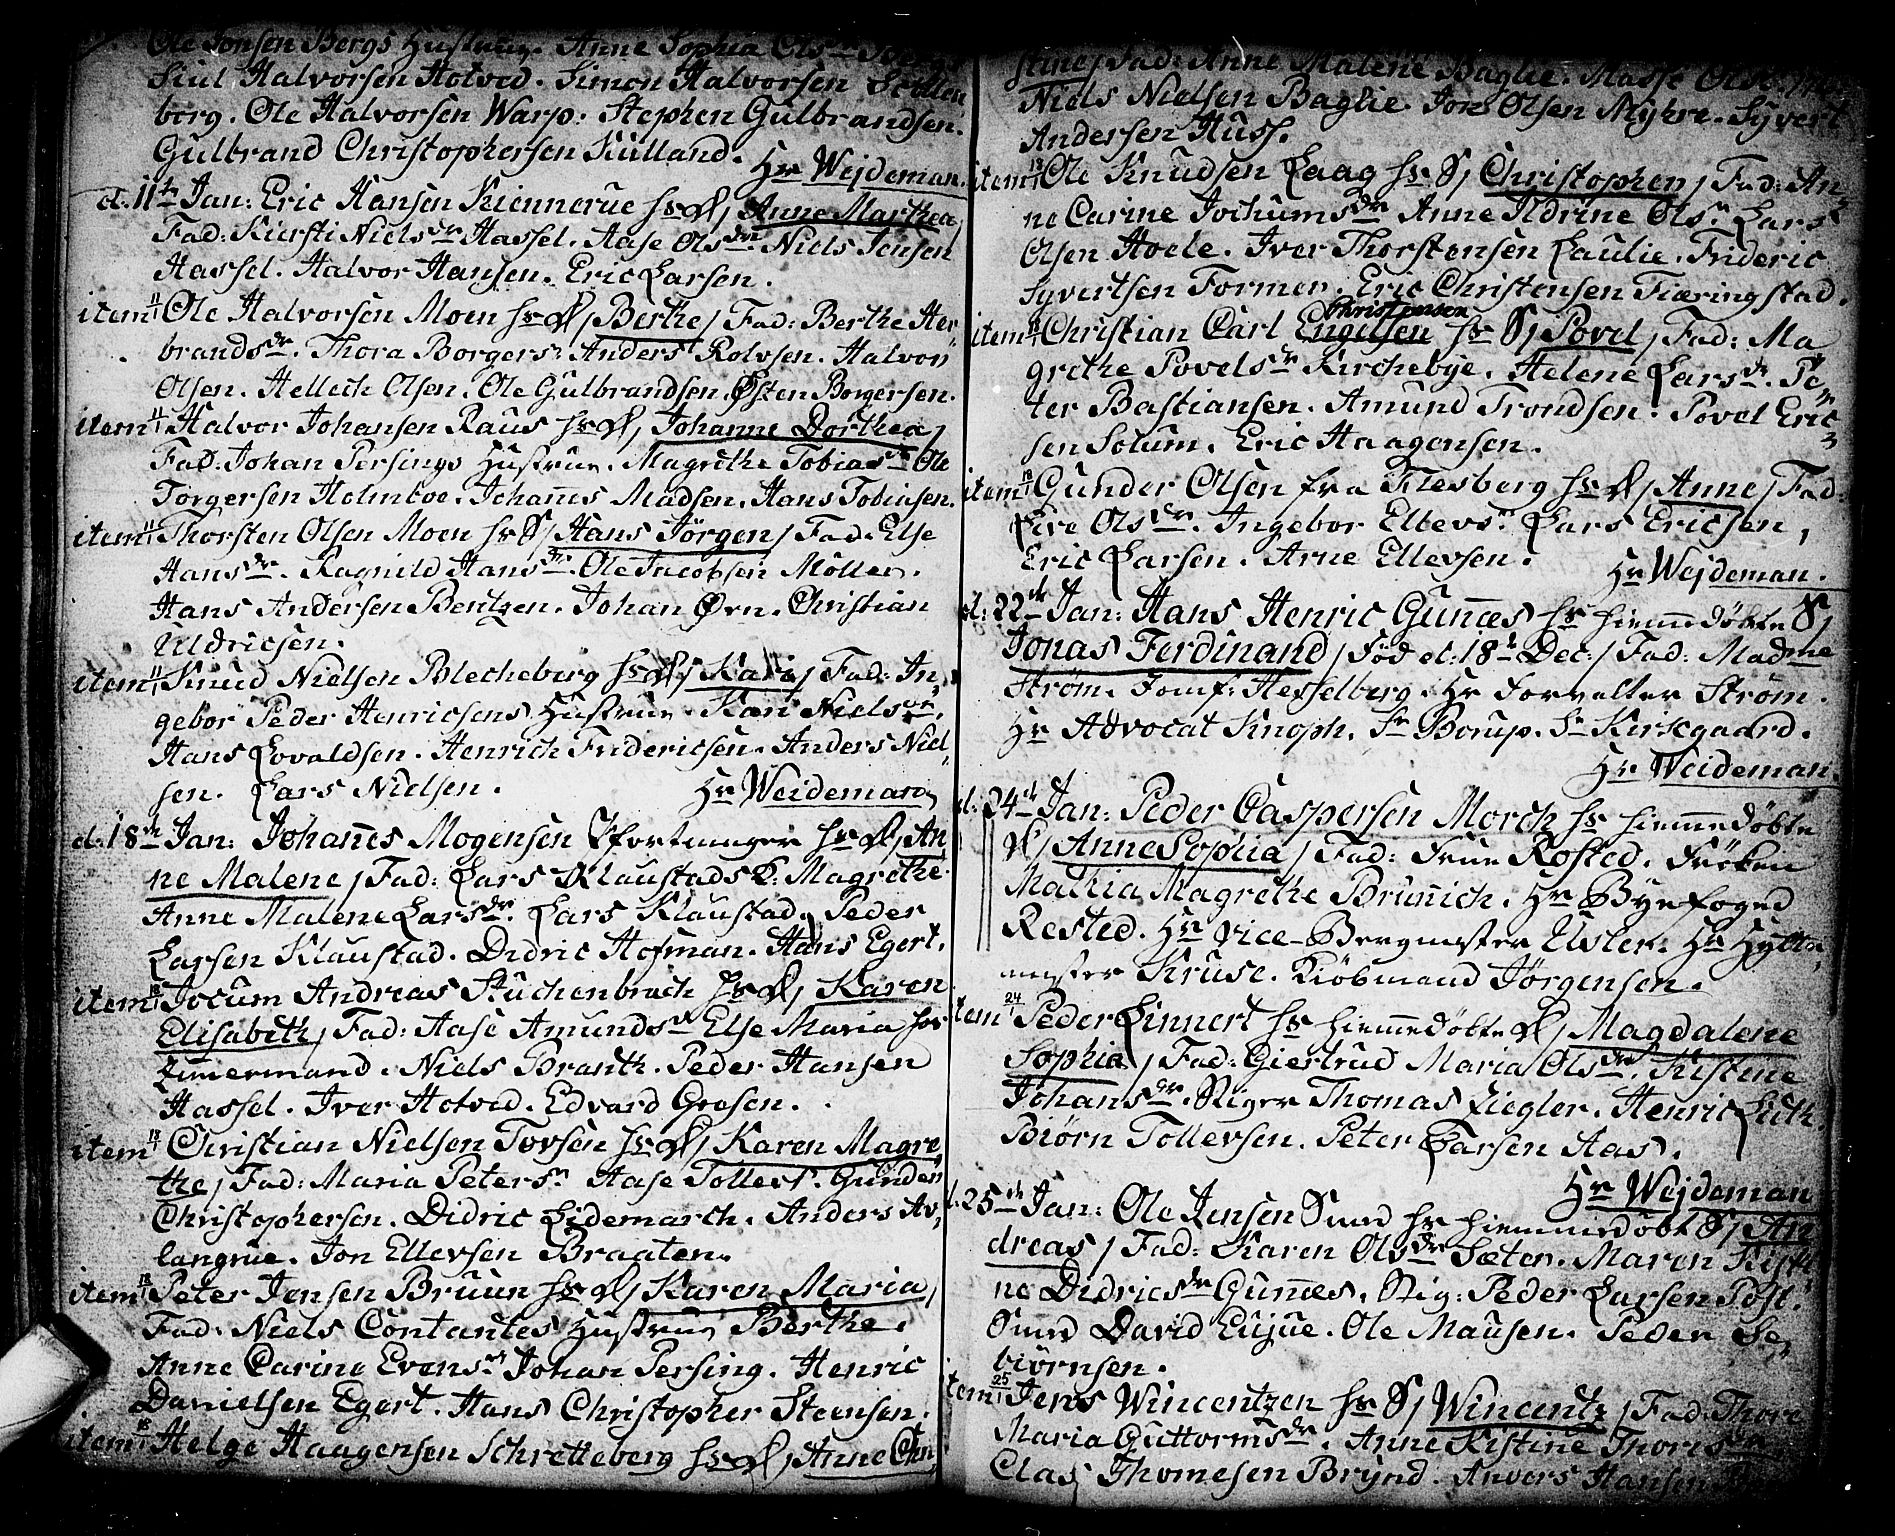 Ole Jonsen Bergs Hustrue. Anne Sophia Olsdr Bergs
Siul Halvorsen Hotved. Simon Halvorsen Skollen
berg. Ole Halvorsen Warp. Stephen Gulbrandsen.
Gulbrand Christophersen Kulland.
Hr Wejdeman.
d. 11te Jan: Eric Hansen Kiennerue hs D/ Anne Marthea/
Fad: Kiersti Nielsdr Hassel. Aase Olsdr Niels Jensen
Hassel. Halvor Hansen. Eric Larsen.
item 11/1 Ole Halvorsen Moen hs D/ Berthe/ Fad: Berthe Her-
brandsdr. Thora Borgersdr Anders Rolvsen. Halvor
Olsen. Hellech Olsen. Ole Gulbrandsen. Østen Borgersen.
item 11/1 Halvor Johansen Raus hs D/ Johanne Dorthea/
Fad: Johan Persings Hustrue. Magrethe Tobiasdr Ole
Torgersen Holmboe. Johannes Madsen. Hans Tobiasen.
item 11/1 Thorsten Olsen Moen hs S/ Hans Jörgen/ Fad: Else
Hansdr. Ragnild Hansdr. Ole Jacobsen Möller.
Hans Andersen Bentzen. Johan Örn. Christian
Uldricsen.
item 11/1 Knud Nielsen Blecheberg hs D/ Kari/ Fad: In-
gebor Peder Henricsens Hustrue. Kari Nielsdr.
Hans Lovaldsen. Henrich Fridericsen. Anders Niel-
sen. Lars Nielsen.
Hr Weideman.
d. 18te Jan: Johannes Mogensen Pfortunger hs D/ An-
ne Malene/ Fad: Lars Klaustads K: Magrethe
Anne Malene Larsdr. Lars Klaustad. Peder
Larsen Klaustad. Didric Hofman. Hans Egert.
item 18/1 Jocum Andreas Kuchenbrach hs D/ Karen
Elisabeth/ Fad: Aase Amundsdr Else Maria
Zimermand. Niels Brantz. Peder Hansen
Hassel. Iver Hotved. Edvard Gresen.
item 18/1 Christian Nielsen Torsen hs D/ Karen Magre-
the/ Fad: Maria Petersdr Aase Tollevsdr. Gunder
Christophersen. Didric Lidemarch. Anders Av-
langrue. Jon Ellevsen Braaten.
item 18/1 Peter Jensen Bruun hs D/ Karen Maria/
Fad: Niels Contantes Hustrue Berthe.
Anne Carine Evensdr Johan Persing. Henric
Danielsen Egert. Hans Christopher Steensen.
item 18/1 Helge Haagensen Schretteberg hs D/ Anne Chri
stine/ Fad: Anne Malene Baglie. Masse
Niels Nielsen Baglie. Jon Olsen Myhre. Syvert
Andersen Huss.
item 18/1 Ole Knudsen Laag hs S/ Christopher/ Fad: An-
ne Carine Jochumsdr Anne Ildrine Olsdr Lars
Olsen Hoele. Iver Thorstensen Laulie. Frideric
Syvertsen Former. Eric Christensen Fiæringstad.
Christensen
item 18/1 Christian Carl Engelsen hs S/ Povel/ Fad: Ma
grethe Povelsdr Kirchebye. Helene Larsdr. Pe-
ter Bastiansen. Amund Trondsen. Povel Eric-
sen Solum. Eric Haagensen.
item 18/1 Gunder Olsen fra Flesberg hs D/ Anne/ Fad:
Live Olsdr. Ingebor Ellevsdr Lars Ericsen,
Eric Larsen. Arne Ellevsen.
Hr Wejdeman.
d. 22de Jan: Hans Henric Gunnes hs hiemmedöbte S/
Jonas Ferdinand/ föd d: 18de Dec:/ Fad: Madme
Ström. Jomf: Hesselberg. Hr Forvalter Ström.
Hr Advocat Knoph. Sr Borup. Sr Kirkgaard.
Hr Weideman.
d. 24de Jan: Peder Caspersen Morch hs hiemmedöbte
D/ Anne Sophia/ Fad: Frue Rosted. Fröken
Mathia Magrethe Brünnich. Hr Byefoged
Rosted. Hr Vice-Bergmester Usler. Hr Hytte-
mester Kruse. Kiöbmand Jörgensen.
item 24/1 Peder Linnert hs hiemmedöbte D/ Magdalene
Sophia/ Fad: Giertrud Maria Olsdr. Kistine
Johansdr. Stiger Thomas Ziegler. Henric Luth.
Biörn Tollevsen. Peter Larsen Aas.
Hr Wejdeman
d. 25de Jan: Ole Jensen Smed hs hiemmedöbt S/ An
dreas/ Fad: Karen Olsdr Sæter. Maren Kisti
ne Didricsdr Gunnes. Stig: Peder Larsen Post.
Smed David Eujue. Ole Mausen. Peder Se-
biörnsen.
item 25/1 Jens Wincentzen hs S/ Wincentz/ Fad: Thore
Maria Guttormsdr. Anne Kistine Thorisdr
Clas Thomesen Brynd. Anvers Hansen